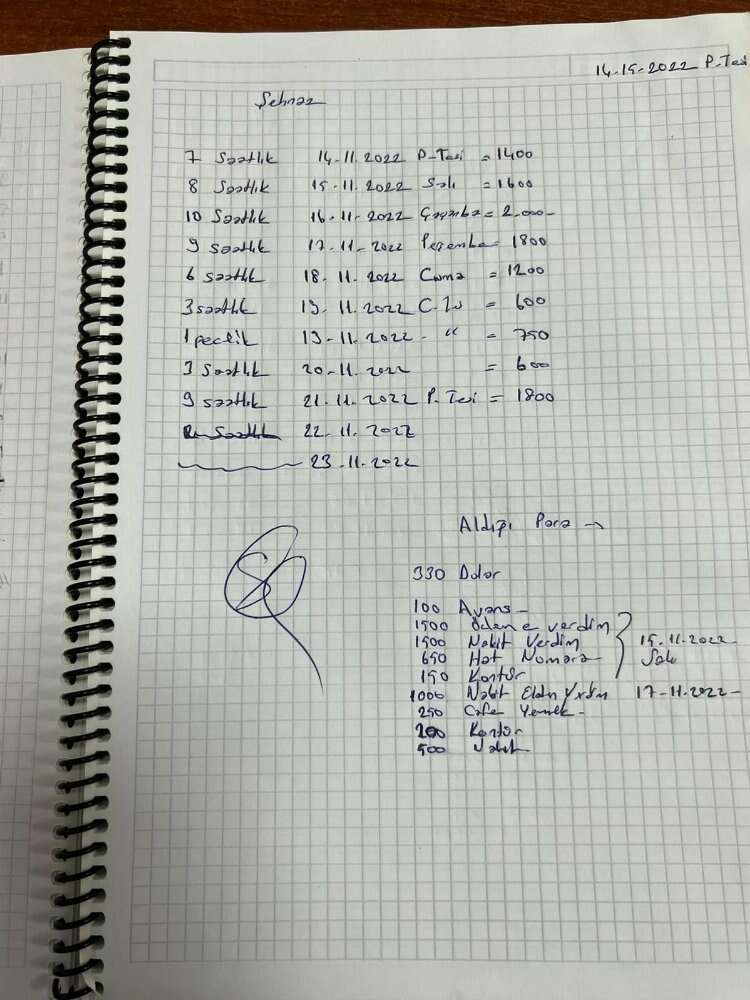 14-15-2022 P-Tesi
Şehnaz
7 Saatlık 14-11.2022 P-Tesi = 1400
8 Saatlık 15-11.2022 Salı = 1600
10 Saatlık 16-11-2022 Çarşamba = 2.000-
9 saatlık 17-11-2022 Perşembe = 1800
6 saatlık 18-11.2022 Cuma = 1200
3 saatlık 19-11.2022 C. = 600
1 pectik 19-11-2022 - " = 750
3 Saatlık 20-11.2022 = 600
9 saatlık 21.11.2022 P.Tesi = 1800
Saatlık 22-11.2022
23.11.2022
Aldığı Para →
330 Dolar
100 Avans-
1500 ödeme verdim
1500 Nakit Verdim 15.11.2022-
650 Hat Numara- Salı
150 Kontör
1000 Nakit Eldn Vrdm 17-11.2022-
250 Cafe Yemek-
200 Kontör
500 Nakit